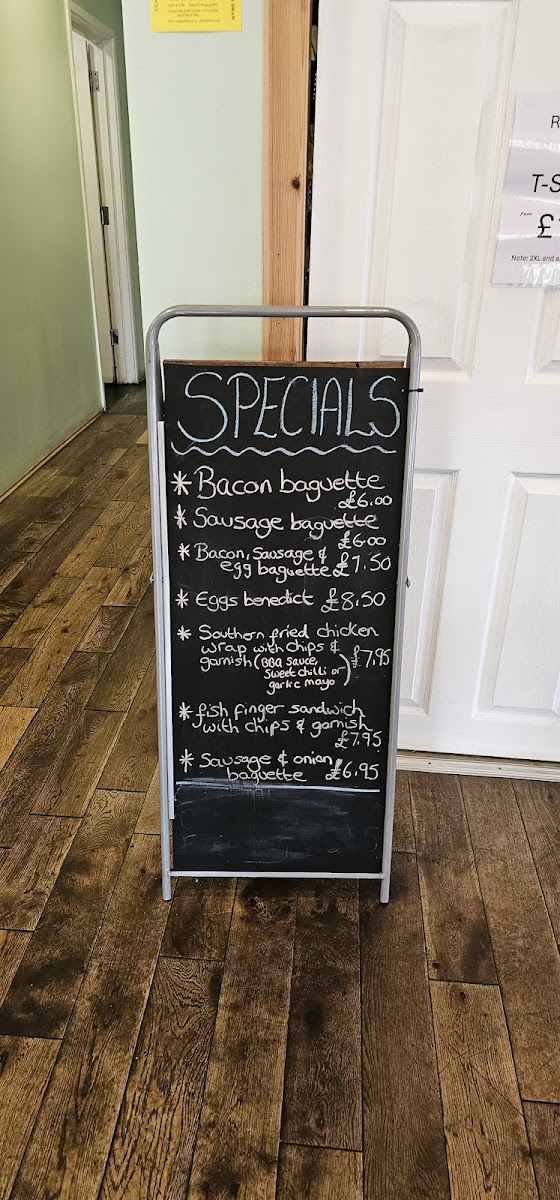 SPECIALS
* Bacon baguette
£6.00
* Sausage baguette
£6.00
* Bacon, Sausage &
egg baguette £7.50
* Eggs benedict £8.50
* Southern fried chicken
wrap with chips &
garnish (BBQ Sauce, £7.95
Sweet chilli or
garlic mayo)
* fish finger sandwich
with chips & garnish
£7.95
* Sausage & onion
baguette £6.95
T-S
£
Note: 2XL and